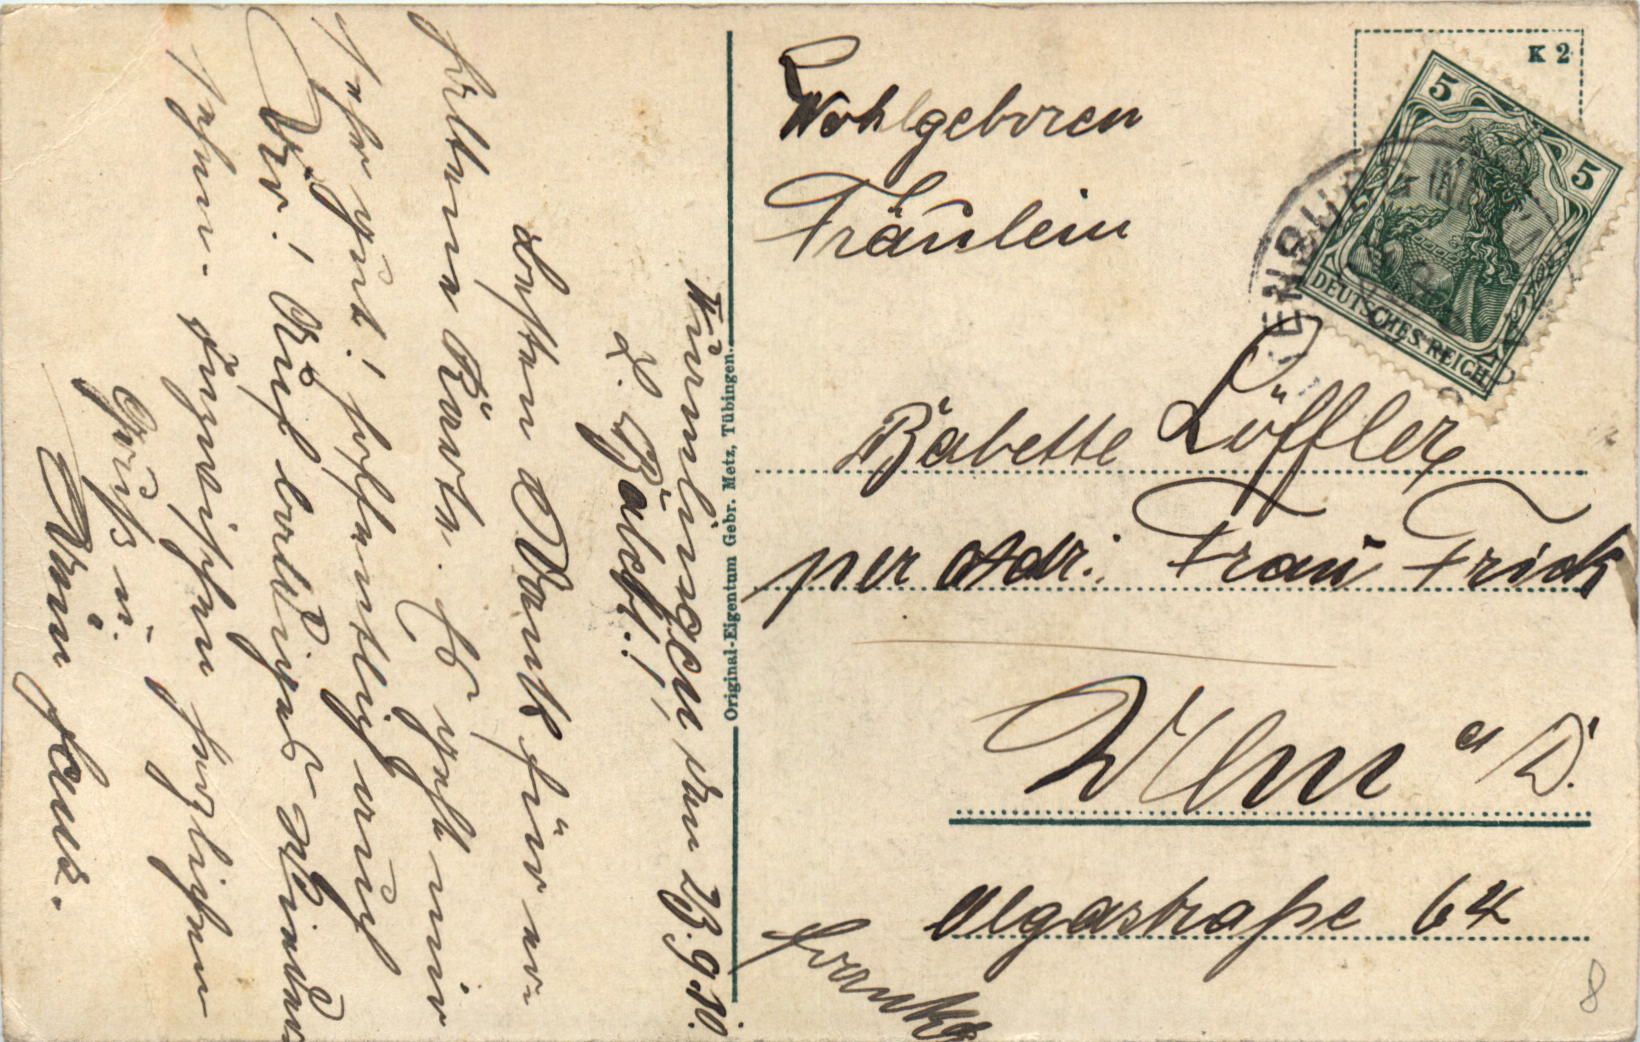 Wurmlingen, den 23.9.10.
L. Babet!
Besten Dank für er-
haltene Karte. Es geht mir
sehr gut! hoffentlich auch
Dir! Auf baldiges Wieder-
sehen. Inzwischen herzlichen
Gruß u.
Original-Eigentum Gebr. Metz, Tübingen.
K 2
5
5
DEUTSCHES REICH
Wohlgeboren
Fräulein
Babette Löffler
per Adr. Frau Frick
Ulm a/D.
Olgastraße 64
franko
8